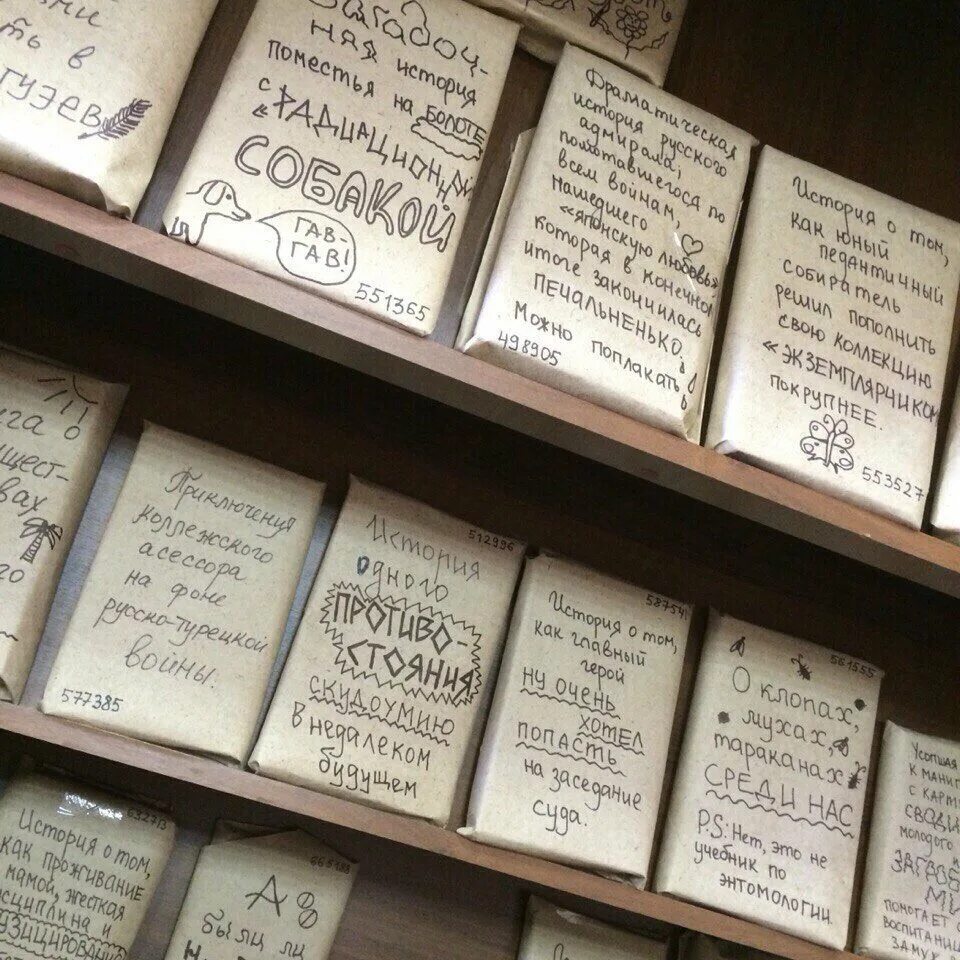 ть в
Загадоч-
ная история
поместья на болоте
с «РАДИАЦИОННОЙ
СОБАКОЙ
ГАВ-
ГАВ!
551365
Драматическая
история русского
адмирала,
помотавшегося по
всем войнам,
нашедшего
«японскую любовь»
которая в конечном
итоге закончилась
ПЕЧАЛЬНЕНЬКО.
Можно поплакать
498905
История о том,
как юный
педантичный
собиратель
решил пополнить
свою коллекцию
«ЭКЗЕМПЛЯРЧИКОМ
ПОКРУПНЕЕ.
553527
Приключения
коллежского
асессора
на фоне
русско-турецкой
войны.
577385
512996
История
одного
ПРОТИВО-
СТОЯНИЯ
СКУДОУМИЮ
В НЕДАЛЕКОМ
будущем
58754
История о том,
как главный
герой
ну очень
хотел
попасть
на заседание
суда.
561555
О клопах,
мухах,
тараканах
СРЕДИ НАС
P.S: Нет, это не
учебник по
энтомологии.
Усопшая
К МАНИ
С КАРМ
молодого
ПОМОГАЕТ
ВОСПИТАНИЦ
ЗАМУЖ
632713
История о том,
как проживание
с мамой, жесткая
дисциплина и
665188
А
были ли